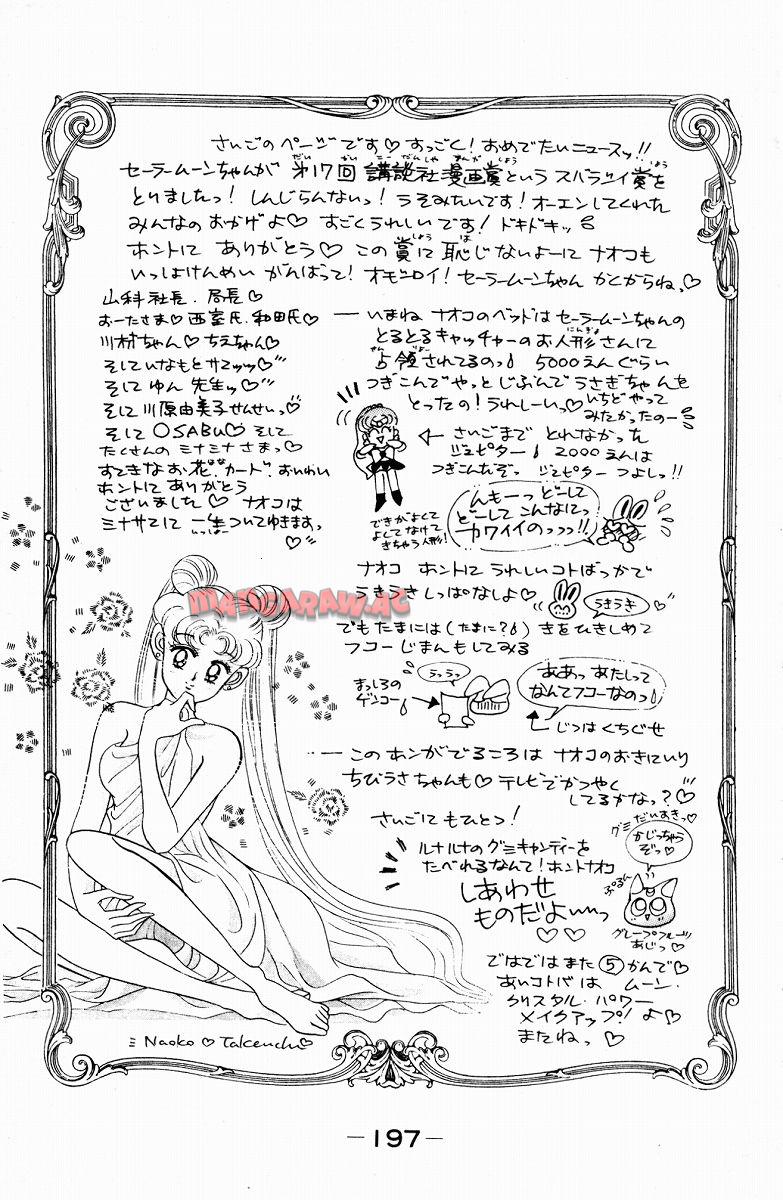 さいごのページです♡すっごく!おめでたいニュースッ!!
セーラームーンちゃんが 第17回 講談社漫画賞という スバラシイ賞を
とりましたっ! しんじらんないっ! うそみたいです! オーエンしてくれた
みんなのおかげよ♡ すごくうれしいです! ドキドキッ
ホントに ありがとう♡ この賞に 恥じないよーに ナオコも
いっしょけんめい がんばって! オモシロイ! セーラームーンちゃん かくからねっ♡
山科社長. 局長♡
おーたさま♡西室氏.和田氏♡
川村ちゃん♡ちえちゃん♡
そしていなもとサマッッ♡
そして ゆん 先生ッ♡
そして 川原由美子せんせいっ♡
そして OSABU♡ そして
たくさんの ミナミナさまっ♡
すてきなお花.カード.おいわい
ホントに ありがとう
ございました♡ ナオコは
ミナサマに 一生ついてゆきますっ♡
— いまね ナオコのベッドは セーラームーンちゃんの
とるとるキャッチャーのお人形さんに
占領されてるのっ 5000えんぐらい
つぎこんでやっと じぶんで うさぎちゃんを
とったの! うれしーいっ♡
いちどやって
みたかったのー
← さいごまで とれなかった
ジュピター 2000えんは
つぎこんだぞっ ジュピター つよしっ!!
できがよくて
よくて なけて
きちゃう人形!
んもーっ どーして
どーして こんなにっ
カワイイのっっっ!!
ナオコ ホントに うれしいコトばっかで
うきうきしっぱなしよ♡
うきうき
でもたまには(たまに?) きをひきしめて
フコーじまんもしてみる
まっしろの
ゲンコー
うっうっ
ああっ あたしって
なんてフコーなのっ
じつは くちぐせ
— この ホンがでるころは ナオコのおきにいり
ちびうさちゃんも♡ テレビでかつやく
してるかなっ?♡
さいごにもひとつ!
ルナルナのグミキャンディーを
たべれるなんて! ホントナオコ
しあわせ
ものだよーーっ
♡♡
グミ だいすきっ♡
かじっちゃう
ぞっ♡
ぷるるん
グレープフルーツ
あじっ♡
ではではまた ⑤かんで♡
あいコトバは ムーン・
クリスタル・パワー
メイクアップ! よ♡
またねっ♡
Naoko♡Takeuchi♡
MANGARAW.AC
—197—